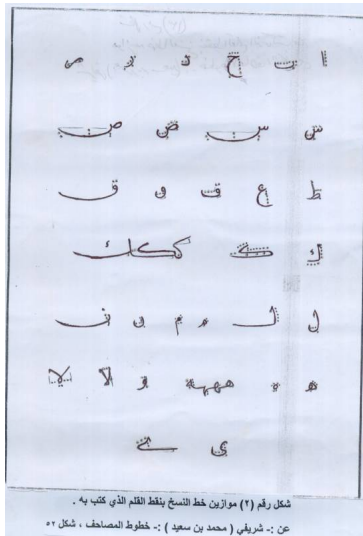 ا ت ح د ر م
س س ض ص
ط ع ف و ق
ك ك ككك
ل ل م م ن ن
ه ه ههه و لا لا
ى ے
شكل رقم (٢) موازين خط النسخ بنقط القلم الذي كتب به .
عن :- شريفي ( محمد بن سعيد ) :- خطوط المصاحف ، شكل ٥٢